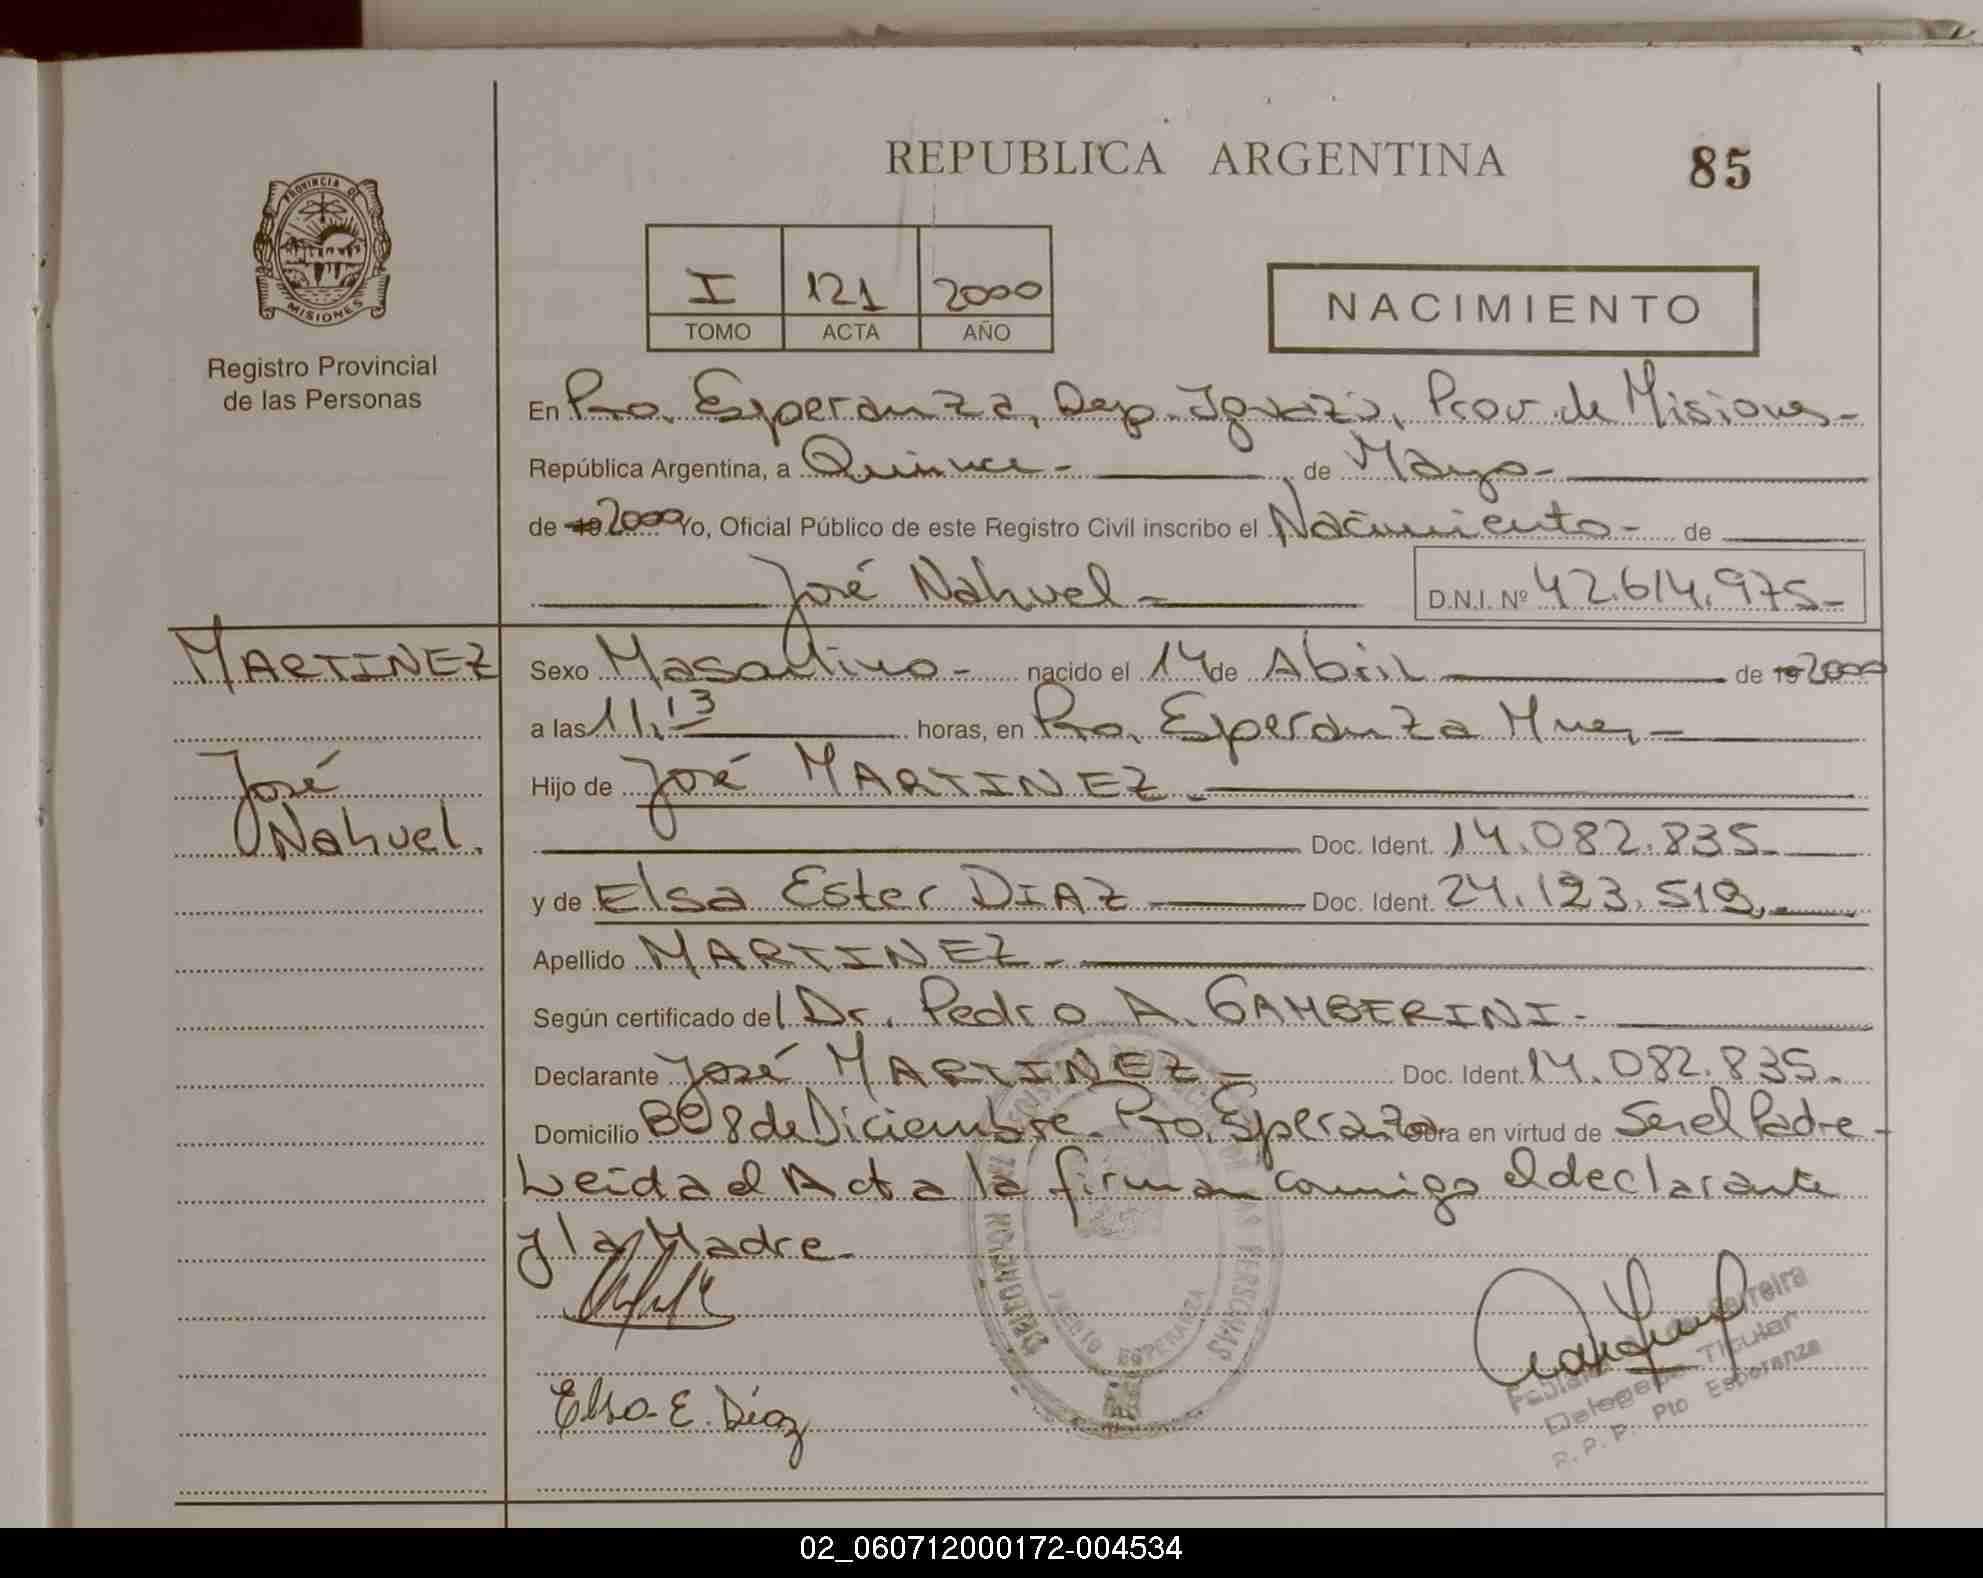 REPUBLICA ARGENTINA
85
PROVINCIA DE
MISIONES
Registro Provincial
de las Personas
I 121 2000
TOMO ACTA AÑO
NACIMIENTO
En Pto. Esperanza, Dep. Iguazú, Prov. de Misiones-
República Argentina, a Quince- de Mayo-
de 19 2000 Yo, Oficial Público de este Registro Civil inscribo el Nacimiento- de
José Nahuel-
D.N.I. Nº 42.614.975-
MARTINEZ
José
Nahuel.
Sexo Masculino- nacido el 14 de Abril de 19 2000
a las 11,13 horas, en Pto. Esperanza Mnes,-
Hijo de José MARTINEZ.-
Doc. Ident. 14.082.835-
y de Elsa Ester DIAZ Doc. Ident. 24.123.519,-
Apellido MARTINEZ-
Según certificado del Dr. Pedro A. GAMBERINI-
Declarante José MARTINEZ- Doc. Ident. 14.082.835-
Domicilio Bº 8 de Diciembre- Pto. Esperanza obra en virtud de Ser el Padre-
Leída el Acta la firman conmigo el declarante
y la Madre-
Elsa E. Díaz
Ferreira
Titular
R.P.P. Pto Esperanza
DE LAS PERSONAS
PUERTO ESPERANZA
02_060712000172-004534